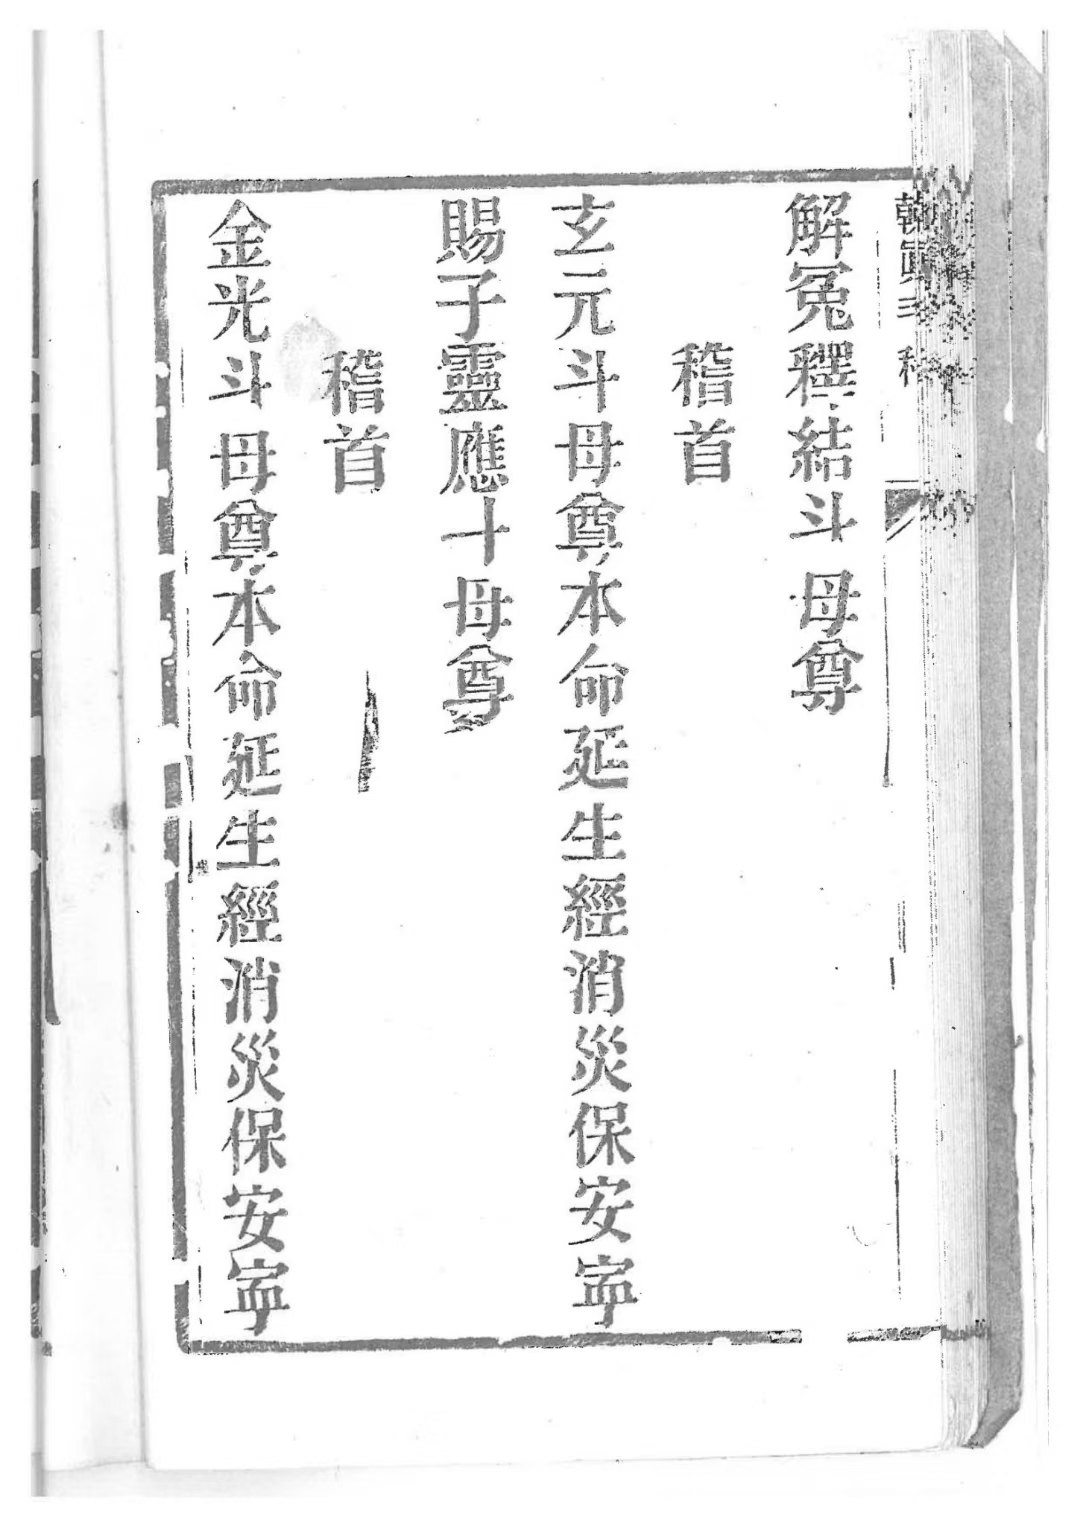 解冤釋結斗母尊
稽首
玄元斗母尊本命延生經消災保安寧
賜子靈應十母尊
稽首
金光斗母尊本命延生經消災保安寧